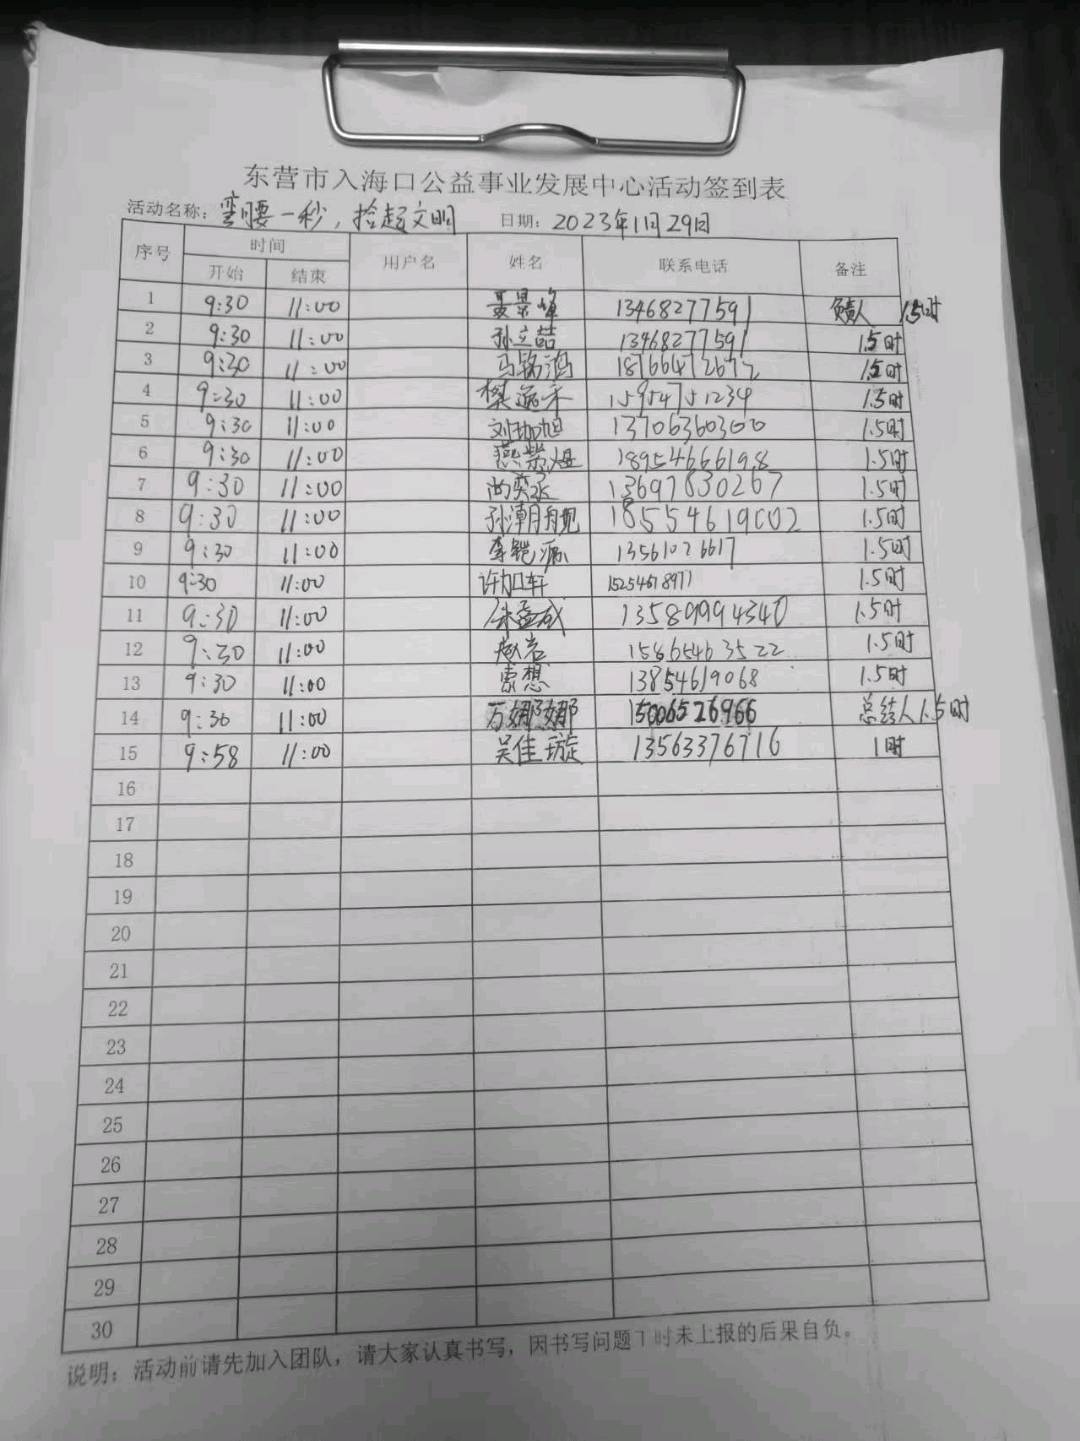 东营市入海口公益事业发展中心活动签到表
活动名称：弯腰一秒，捡起文明 日期：2023年1月29日
序号 时间 用户名 姓名 联系电话 备注
开始 结束
1 9:30 11:00 聂景峰 13468277591 负责人 1.5时
2 9:30 11:00 孙立喆 13468277591 1.5时
3 9:30 11:00 马铭鸿 18766472677 1.5时
4 9:30 11:00 15954751234 1.5时
5 9:30 11:00 刘珈旭 13706360300 1.5时
6 9:30 11:00 燕紫煜 18954666198 1.5时
7 9:30 11:00 尚奕丞 13697830267 1.5时
8 9:30 11:00 孙潮舰 18554619002 1.5时
9 9:30 11:00 李铠源 13561026617 1.5时
10 9:30 11:00 许加轩 15254618977 1.5时
11 9:30 11:00 朱孟成 13589994340 1.5时
12 9:30 11:00 赵岩 15865463522 1.5时
13 9:30 11:00 索想 13854619068 1.5时
14 9:30 11:00 万娜娜 15006526966 总结人 1.5时
15 9:58 11:00 吴佳璇 13563376716 1时
16
17
18
19
20
21
22
23
24
25
26
27
28
29
30
说明：活动前请先加入团队，请大家认真书写，因书写问题 时未上报的后果自负。